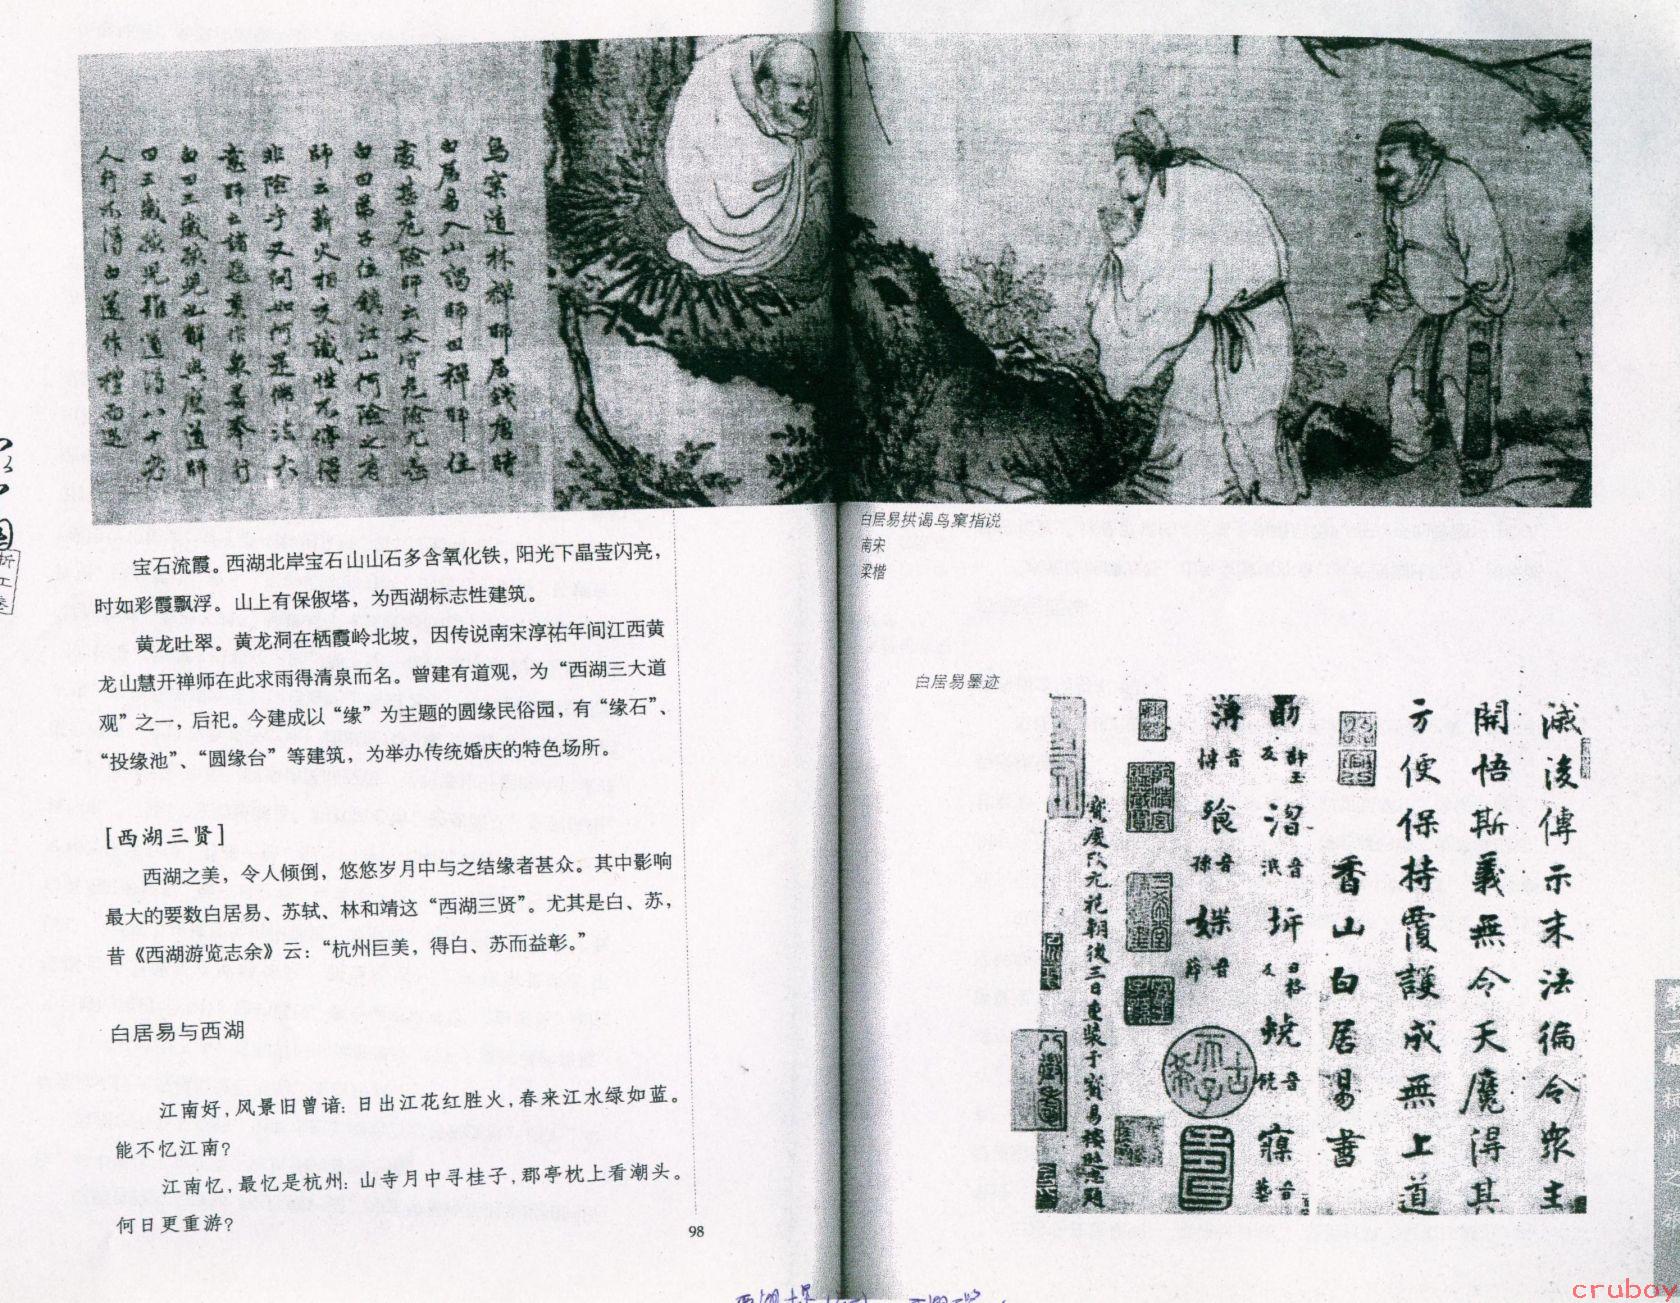 鳥窠道林禪師居錢唐時
白居易入山謁師曰禪師住
處甚危險師云太守危險尤甚
白曰弟子位鎮江山何險之有
師云薪火相交識性不停得
非險乎又問如何是佛法大
意師云諸惡莫作衆善奉行
白曰三歲孩兒也解與麼道師
曰三歲孩兒雖道得八十老
人行不得白遂作禮而退
宝石流霞。西湖北岸宝石山山石多含氧化铁，阳光下晶莹闪亮，
时如彩霞飘浮。山上有保俶塔，为西湖标志性建筑。
黄龙吐翠。黄龙洞在栖霞岭北坡，因传说南宋淳祐年间江西黄
龙山慧开禅师在此求雨得清泉而名。曾建有道观，为“西湖三大道
观”之一，后祀。今建成以“缘”为主题的圆缘民俗园，有“缘石”、
“投缘池”、“圆缘台”等建筑，为举办传统婚庆的特色场所。
[西湖三贤]
西湖之美，令人倾倒，悠悠岁月中与之结缘者甚众。其中影响
最大的要数白居易、苏轼、林和靖这“西湖三贤”。尤其是白、苏，
昔《西湖游览志余》云：“杭州巨美，得白、苏而益彰。”
白居易与西湖
江南好，风景旧曾谙：日出江花红胜火，春来江水绿如蓝。
能不忆江南？
江南忆，最忆是杭州：山寺月中寻桂子，郡亭枕上看潮头。
何日更重游？
98
白居易拱谒鸟窠指说
南宋
梁楷
白居易墨迹
滅後傳示末法徧令衆生
開悟斯義無令天魔得其
方便保持覆護成無上道
香山白居易書
寶慶改元花朝後三日重裝于寶易樓遜志題
cruboy